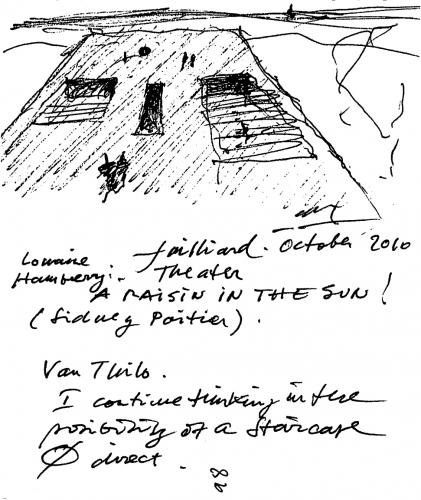 Juilliard. October 2010
Theater
Lorraine
Hansberry:
A RAISIN IN THE SUN!
(Sidney Poitier).
Van Thilo.
I continue thinking in the
posibility of a staircase
Ø direct.